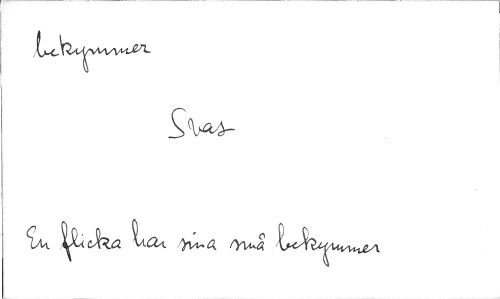 bekymmer
Svas
En flicka har sina små bekymmer